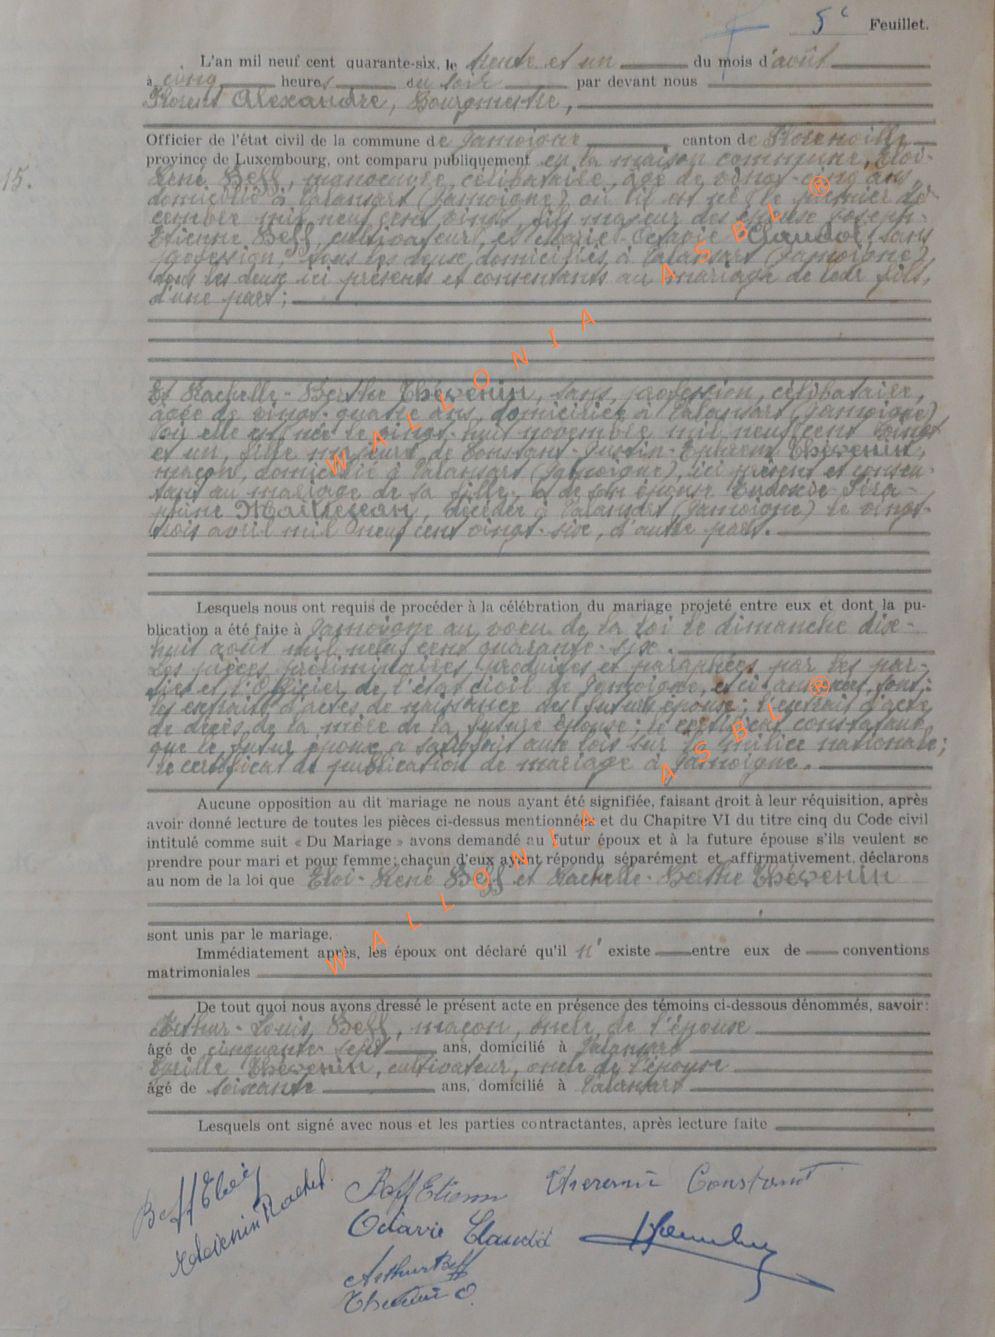 5e Feuillet.
L'an mil neuf cent quarante-six, le trente et un du mois d'août
à cinq heures du soir par devant nous
Florent Alexandre, Bourgmestre,
Officier de l'état civil de la commune de Jamoigne, canton de Florenville
province de Luxembourg, ont comparu publiquement en la maison commune, Eloi-
15.
René Beff, manoeuvre, célibataire, âgé de vingt-cinq ans
domicilié à Valansart (Jamoigne) où il est né le premier dé-
cembre mil neuf cent vingt, fils majeur des époux Joseph-
Etienne Beff, cultivateur, et Marie-Octavie Claudot, sans
profession, tous les deux domiciliés à Valansart (Jamoigne)
tous les deux ici présents et consentants au mariage de leur fils,
d'une part;
Et Rachelle-Berthe Thévenin, sans profession, célibataire,
âgée de vingt-quatre ans, domiciliée à Valansart (Jamoigne)
où elle est née le vingt-huit novembre mil neuf cent vingt
et un, fille majeure de Constant-Justin- Thévenin,
maçon, domicilié à Valansart (Jamoigne), ici présent et consen-
tant au mariage de sa fille, et de son épouse Eudoxie-Séra-
phine Maitrejean, décédée à Valansart (Jamoigne) le vingt-
trois avril mil neuf cent vingt-six, d'autre part.
Lesquels nous ont requis de procéder à la célébration du mariage projeté entre eux et dont la pu-
blication a été faite à Jamoigne au voeu de la loi le dimanche dix-
huit août mil neuf cent quarante-six.
Les pièces préliminaires produites et paraphées par les par-
ties et l'Officier de l'état civil de Jamoigne, et ci-annexées sont:
les extraits d'actes de naissance des futurs époux; l'extrait d'acte
de décès de la mère de la future épouse; le certificat constatant
que le futur époux a satisfait aux lois sur la milice nationale;
le certificat de publication de mariage à Jamoigne.
Aucune opposition au dit mariage ne nous ayant été signifiée, faisant droit à leur réquisition, après
avoir donné lecture de toutes les pièces ci-dessus mentionnées et du Chapitre VI du titre cinq du Code civil
intitulé comme suit « Du Mariage » avons demandé au futur époux et à la future épouse s'ils veulent se
prendre pour mari et pour femme; chacun d'eux ayant répondu séparément et affirmativement, déclarons
au nom de la loi que Eloi-René Beff et Rachelle-Berthe Thévenin
sont unis par le mariage.
Immédiatement après, les époux ont déclaré qu'il n'existe entre eux de conventions
matrimoniales
De tout quoi nous avons dressé le présent acte en présence des témoins ci-dessous dénommés, savoir:
Arthur-Louis Beff, maçon, oncle de l'épouse
âgé de cinquante-sept ans, domicilié à Valansart
Thévenin, cultivateur, oncle de l'épouse
âgé de soixante ans, domicilié à Valansart
Lesquels ont signé avec nous et les parties contractantes, après lecture faite
Beff Eloi
Thévenin Rachel
Beff Etienne
Thevenin Constant
Octavie Claudot
Arthur Beff
Thevenin
WALLONIA ASBL ®
WALLONIA ASBL ®